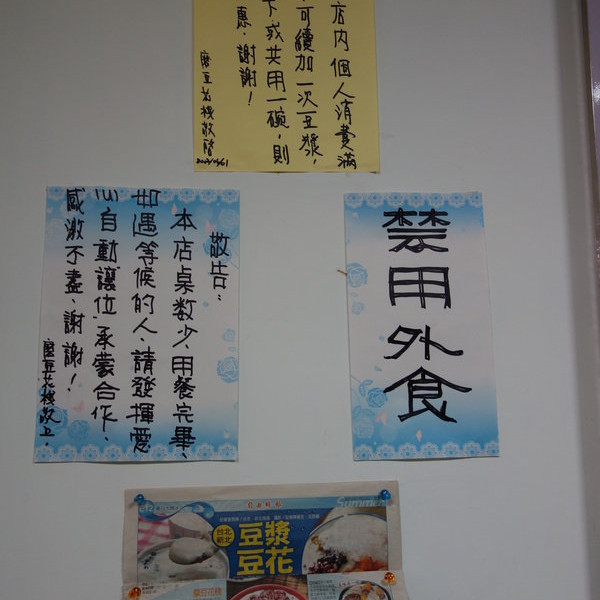 店內個人消費滿
可續加一次豆漿,
下或共用一碗,則
惠、謝謝!
磨豆花棧敬啓
敬告:
本店桌數少、用餐完畢、
如遇等候的人、請發揮愛
心自動讓位、承蒙合作、
感激不盡、謝謝!
磨豆花棧敬上.
禁用外食
Summer
台北
新北
豆漿
豆花